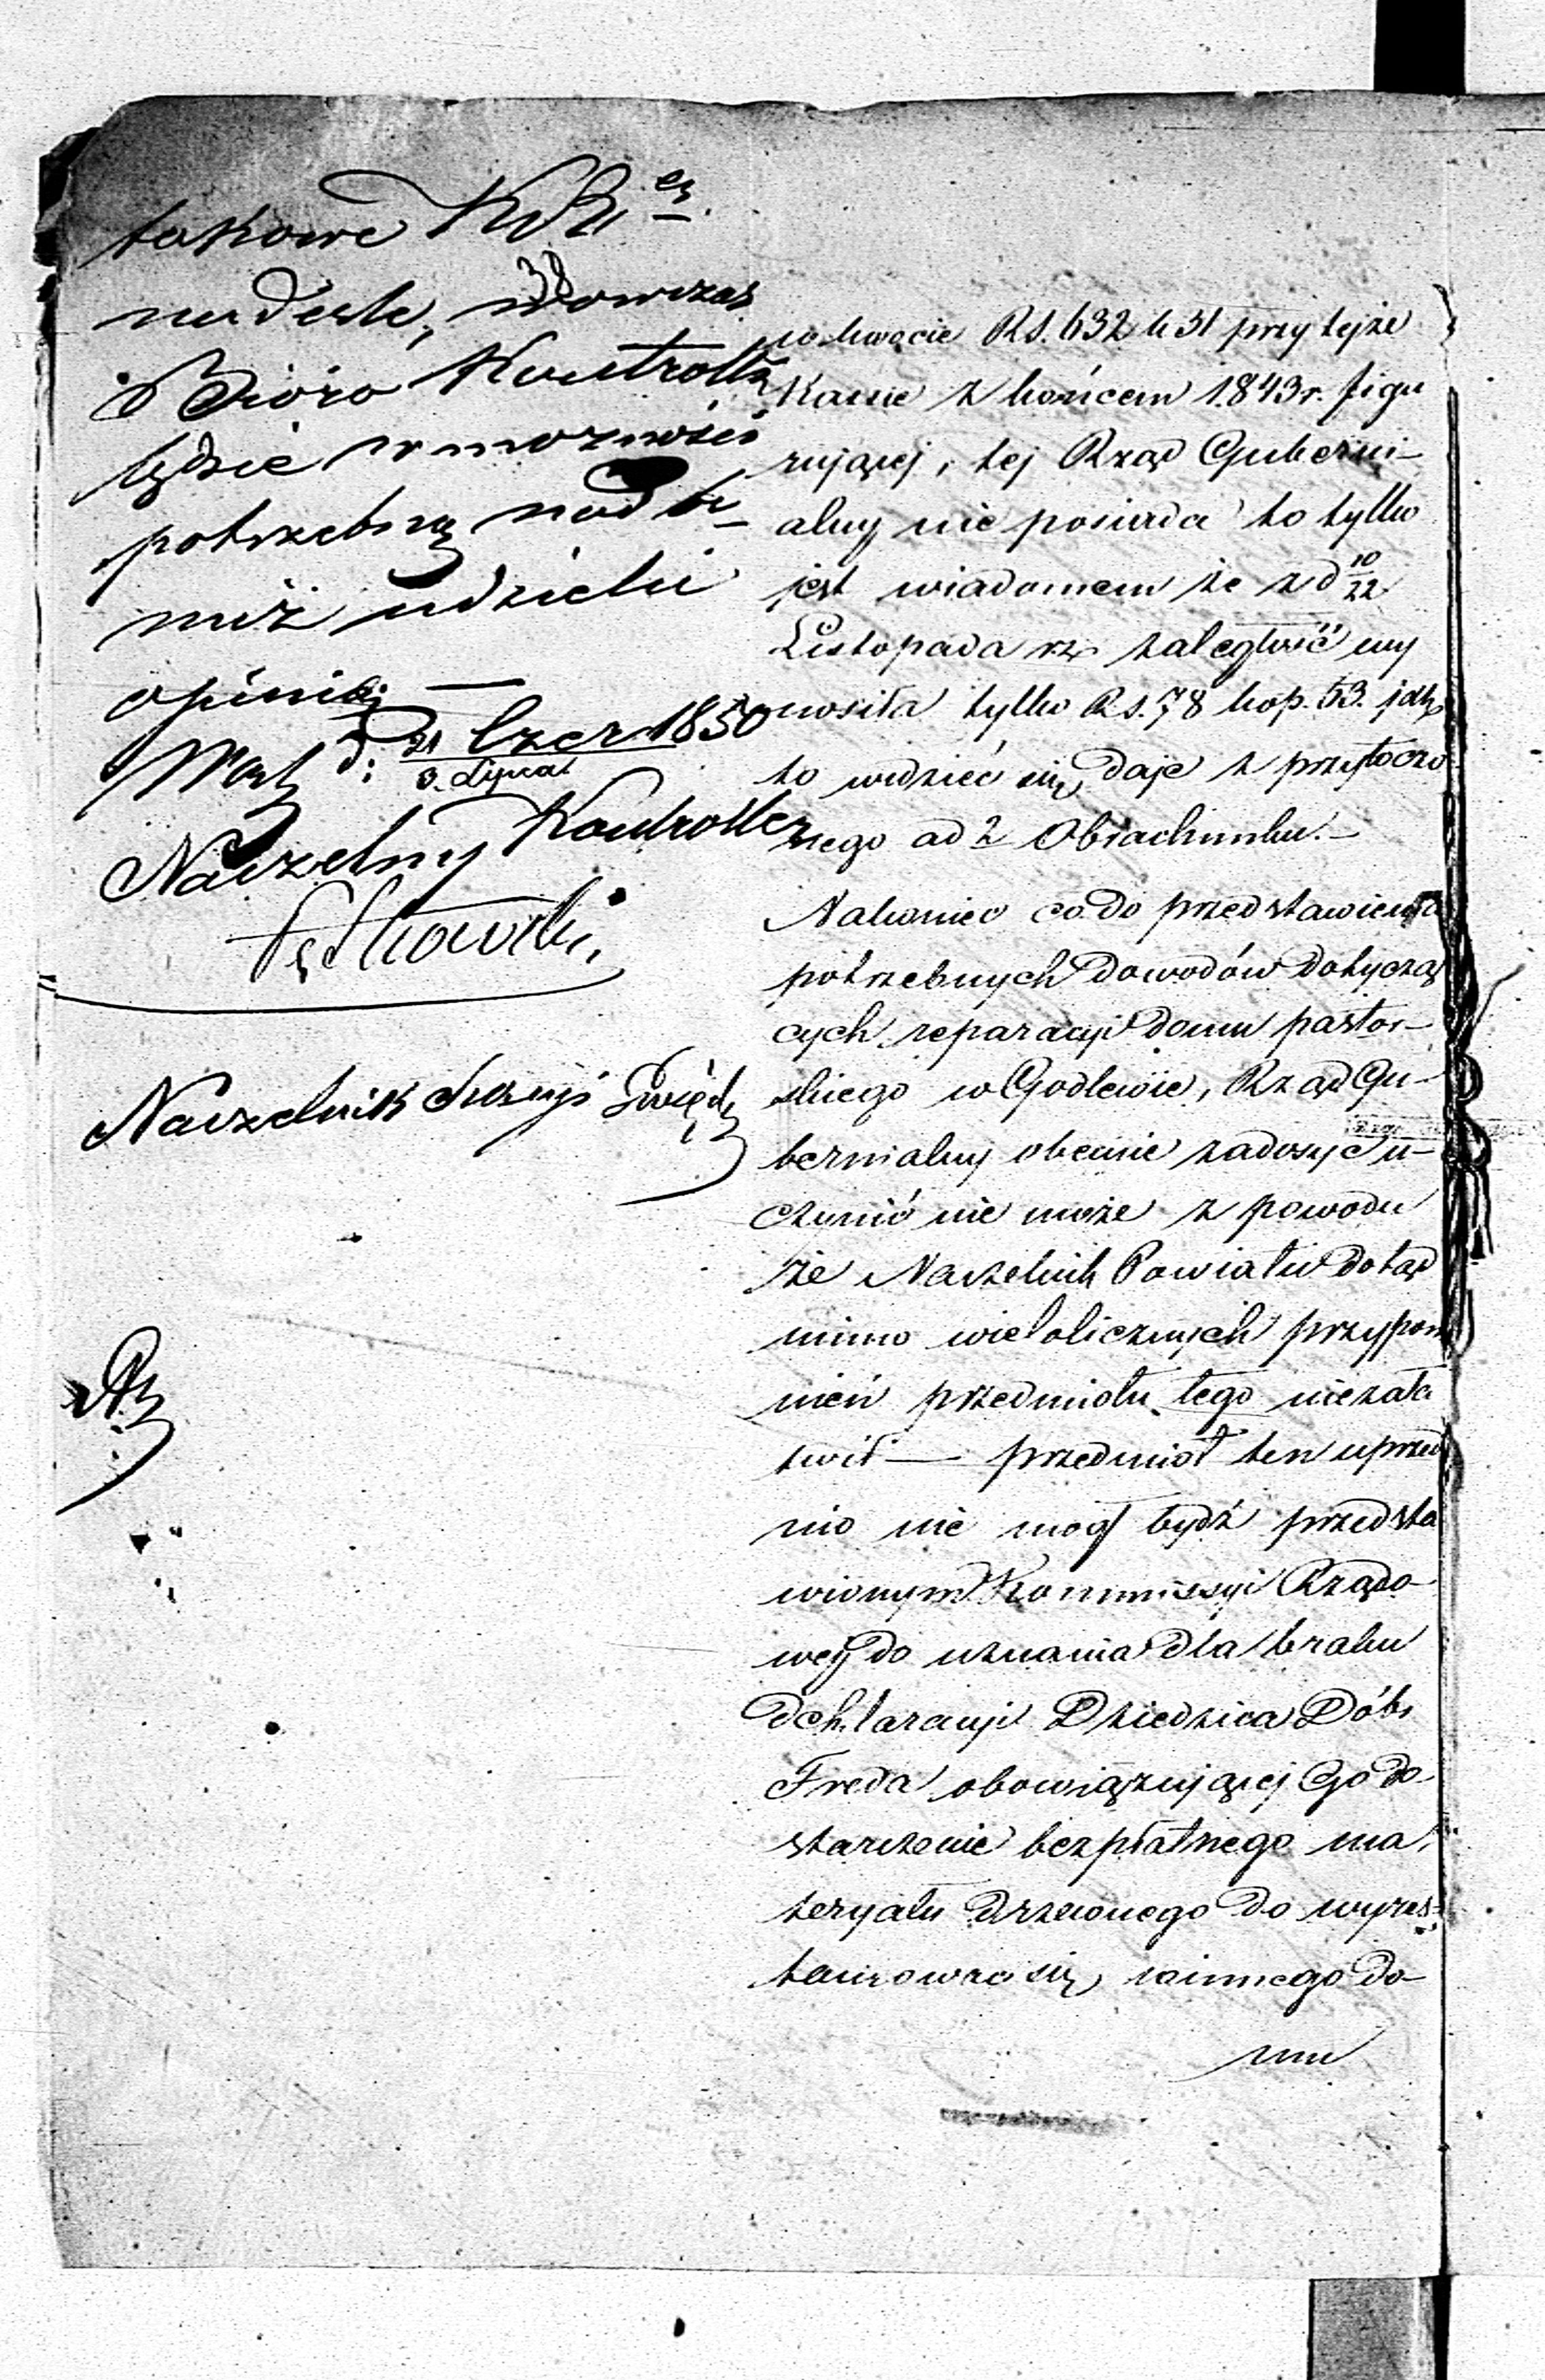 takowe
nadeśle, wowczas
Bióro Kontrolli
będzie w mozności
potrzebną nadto
niż udzieli
opinią —
Wars d: 21 Czer 1850
3. Lipca
Naczelny Kontroller
Naczelnik Sekcyi
w kwocie RS. 632 k 31 przy tejże
Kassie z końcem 1843 r. figu
rującej, tej Rząd Guberni-
alny nie posiada to tylko
jest wiadomem że z d 10/22
Listopada rz zaległość wy
nosiła tylko Rs. 78 kop. 53. jak
to widzieć się daje z przytoczo
nego ad 2 Obrachunku. —
Nakoniec co do przedstawienia
potrzebnych dowodów dotyczą
cych reparacyi domu pastor-
skiego w Godlewie, Rząd Gu-
bernialny obecnie zadosyć u-
czynić nie może z powodu
że Naczelnik Powiatu dotąd
mimo wielolicznych przypom
nień przedmiotu tego niezała
twił — przedmiot ten uprzed
nio nie mógł bydź przedsta
wionym Kommissyi Rządo-
wej do uznania dla braku
deklaracyi Dziedzica Dóbr
Freda obowiązującej Go do-
starczenie bezpłatnego ma-
teryału drzewnego do wyres-
taurowa się winnego do-
mu